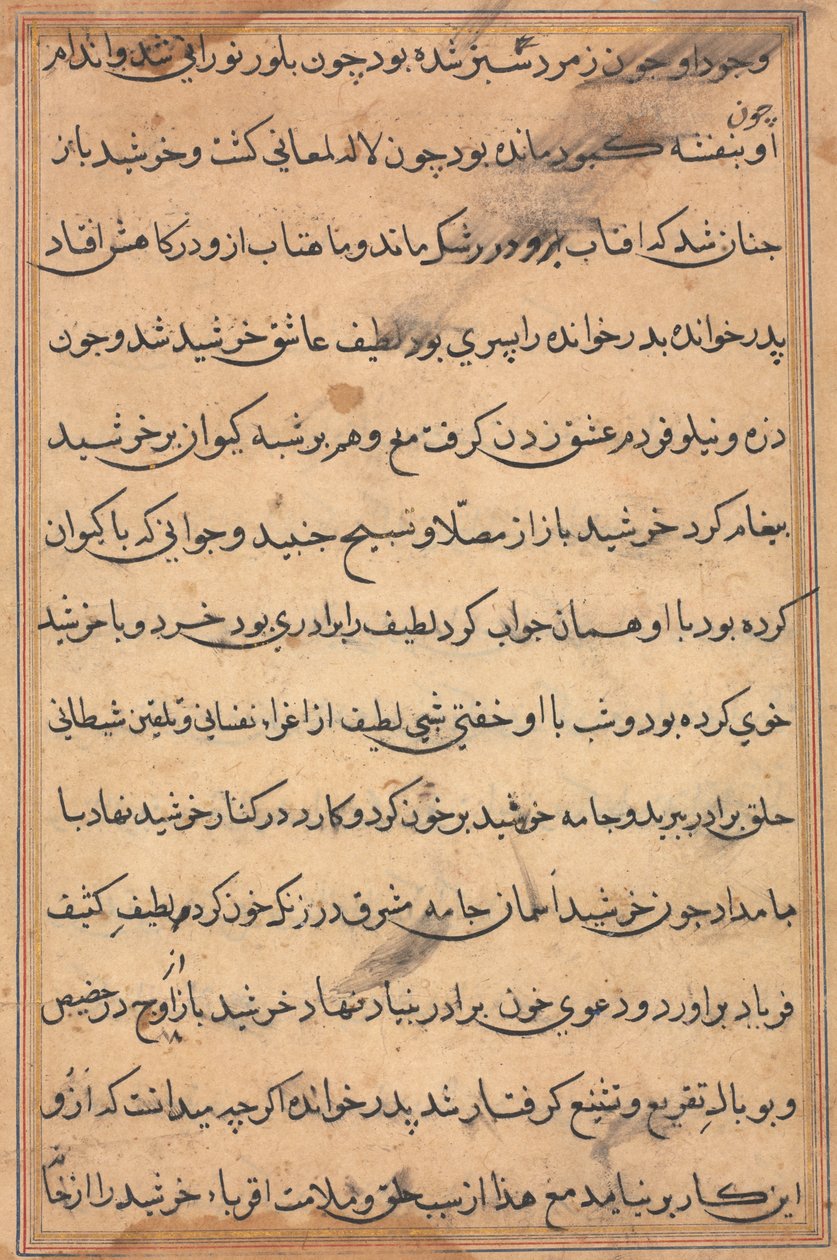 وجود او جون زمرد سبز شده بود چون بلور نورانی شد و اندام
چون
او بنفشه کبود مانده بود چون لاله لمعانی کشت و خرشید باز
جنان شد که افتاب برو در رشک ماند و ماهتاب ازو در کاهش افتاد
پدر خوانده بدر خوانده را پسری بود لطیف عاشق خرشید شد و جون
ذره و نیلوفر دم عشق زدن کرفت مع وهم بر شبه کیوان بر خرشید
بیغام کرد خرشید باز از مصلّا و تسبیح جنبید و جوابی که با کیوان
کرده بود با او همان جواب کرد لطیف را برادری بود خرد و با خرشید
خوی کرده بود و شب با او خفتی شبی لطیف از اغراء نفسانی و تلقین شیطانی
حلق برادر ببرید و جامه خرشید بر خون کرد و کارد در کنار خرشید نهاد با
بامداد جون خرشید آسمان جامه مشرق در رنک خون کرد لطیفِ کثیف
فریاد براورد و دعوی خون برادر بنیاد نهاد خرشید باز از اوج در حضیض
و بوبالِ تقریع و تشنیع کرفتار شد پدر خوانده اکرچه میدانست که ازو
این کار بر نیامد مع هذا از سبب خلق و ملامت اقرباء خرشید را از خانه